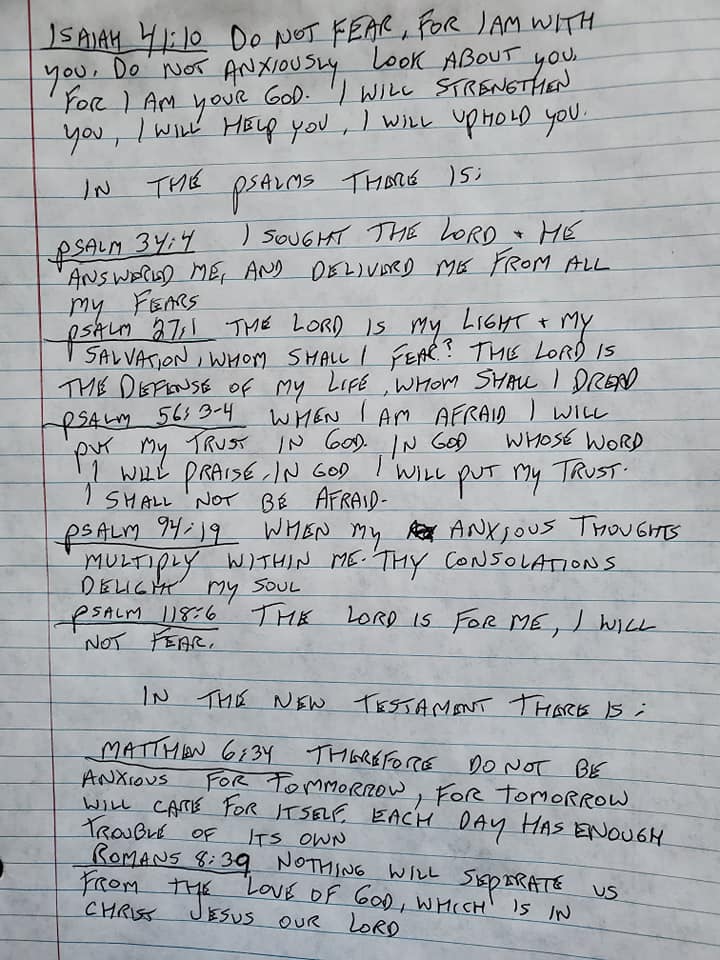 ISAIAH 41:10 DO NOT FEAR, FOR I AM WITH
YOU. DO NOT ANXIOUSLY LOOK ABOUT YOU,
FOR I AM YOUR GOD. I WILL STRENGTHEN
YOU, I WILL HELP YOU, I WILL UPHOLD YOU.
IN THE PSALMS THERE IS:
PSALM 34:4 I SOUGHT THE LORD + HE
ANSWERED ME, AND DELIVERD ME FROM ALL
MY FEARS
PSALM 27:1 THE LORD IS MY LIGHT + MY
SALVATION, WHOM SHALL I FEAR? THE LORD IS
THE DEFENSE OF MY LIFE, WHOM SHALL I DREAD
PSALM 56:3-4 WHEN I AM AFRAID I WILL
PUT MY TRUST IN GOD. IN GOD WHOSE WORD
I WILL PRAISE, IN GOD I WILL PUT MY TRUST.
I SHALL NOT BE AFRAID.
PSALM 94:19 WHEN MY ANXIOUS THOUGHTS
MULTIPLY WITHIN ME. THY CONSOLATIONS
DELIGHT MY SOUL
PSALM 118:6 THE LORD IS FOR ME, I WILL
NOT FEAR.
IN THE NEW TESTAMENT THERE IS:
MATTHEW 6:34 THEREFORE DO NOT BE
ANXIOUS FOR TOMMORROW, FOR TOMORROW
WILL CARE FOR ITSELF. EACH DAY HAS ENOUGH
TROUBLE OF ITS OWN
ROMANS 8:39 NOTHING WILL SEPERATE US
FROM THE LOVE OF GOD, WHICH IS IN
CHRIST JESUS OUR LORD